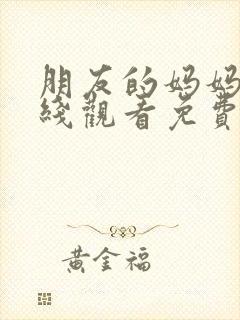 朋友的妈妈
綫觀看免費
黃金福